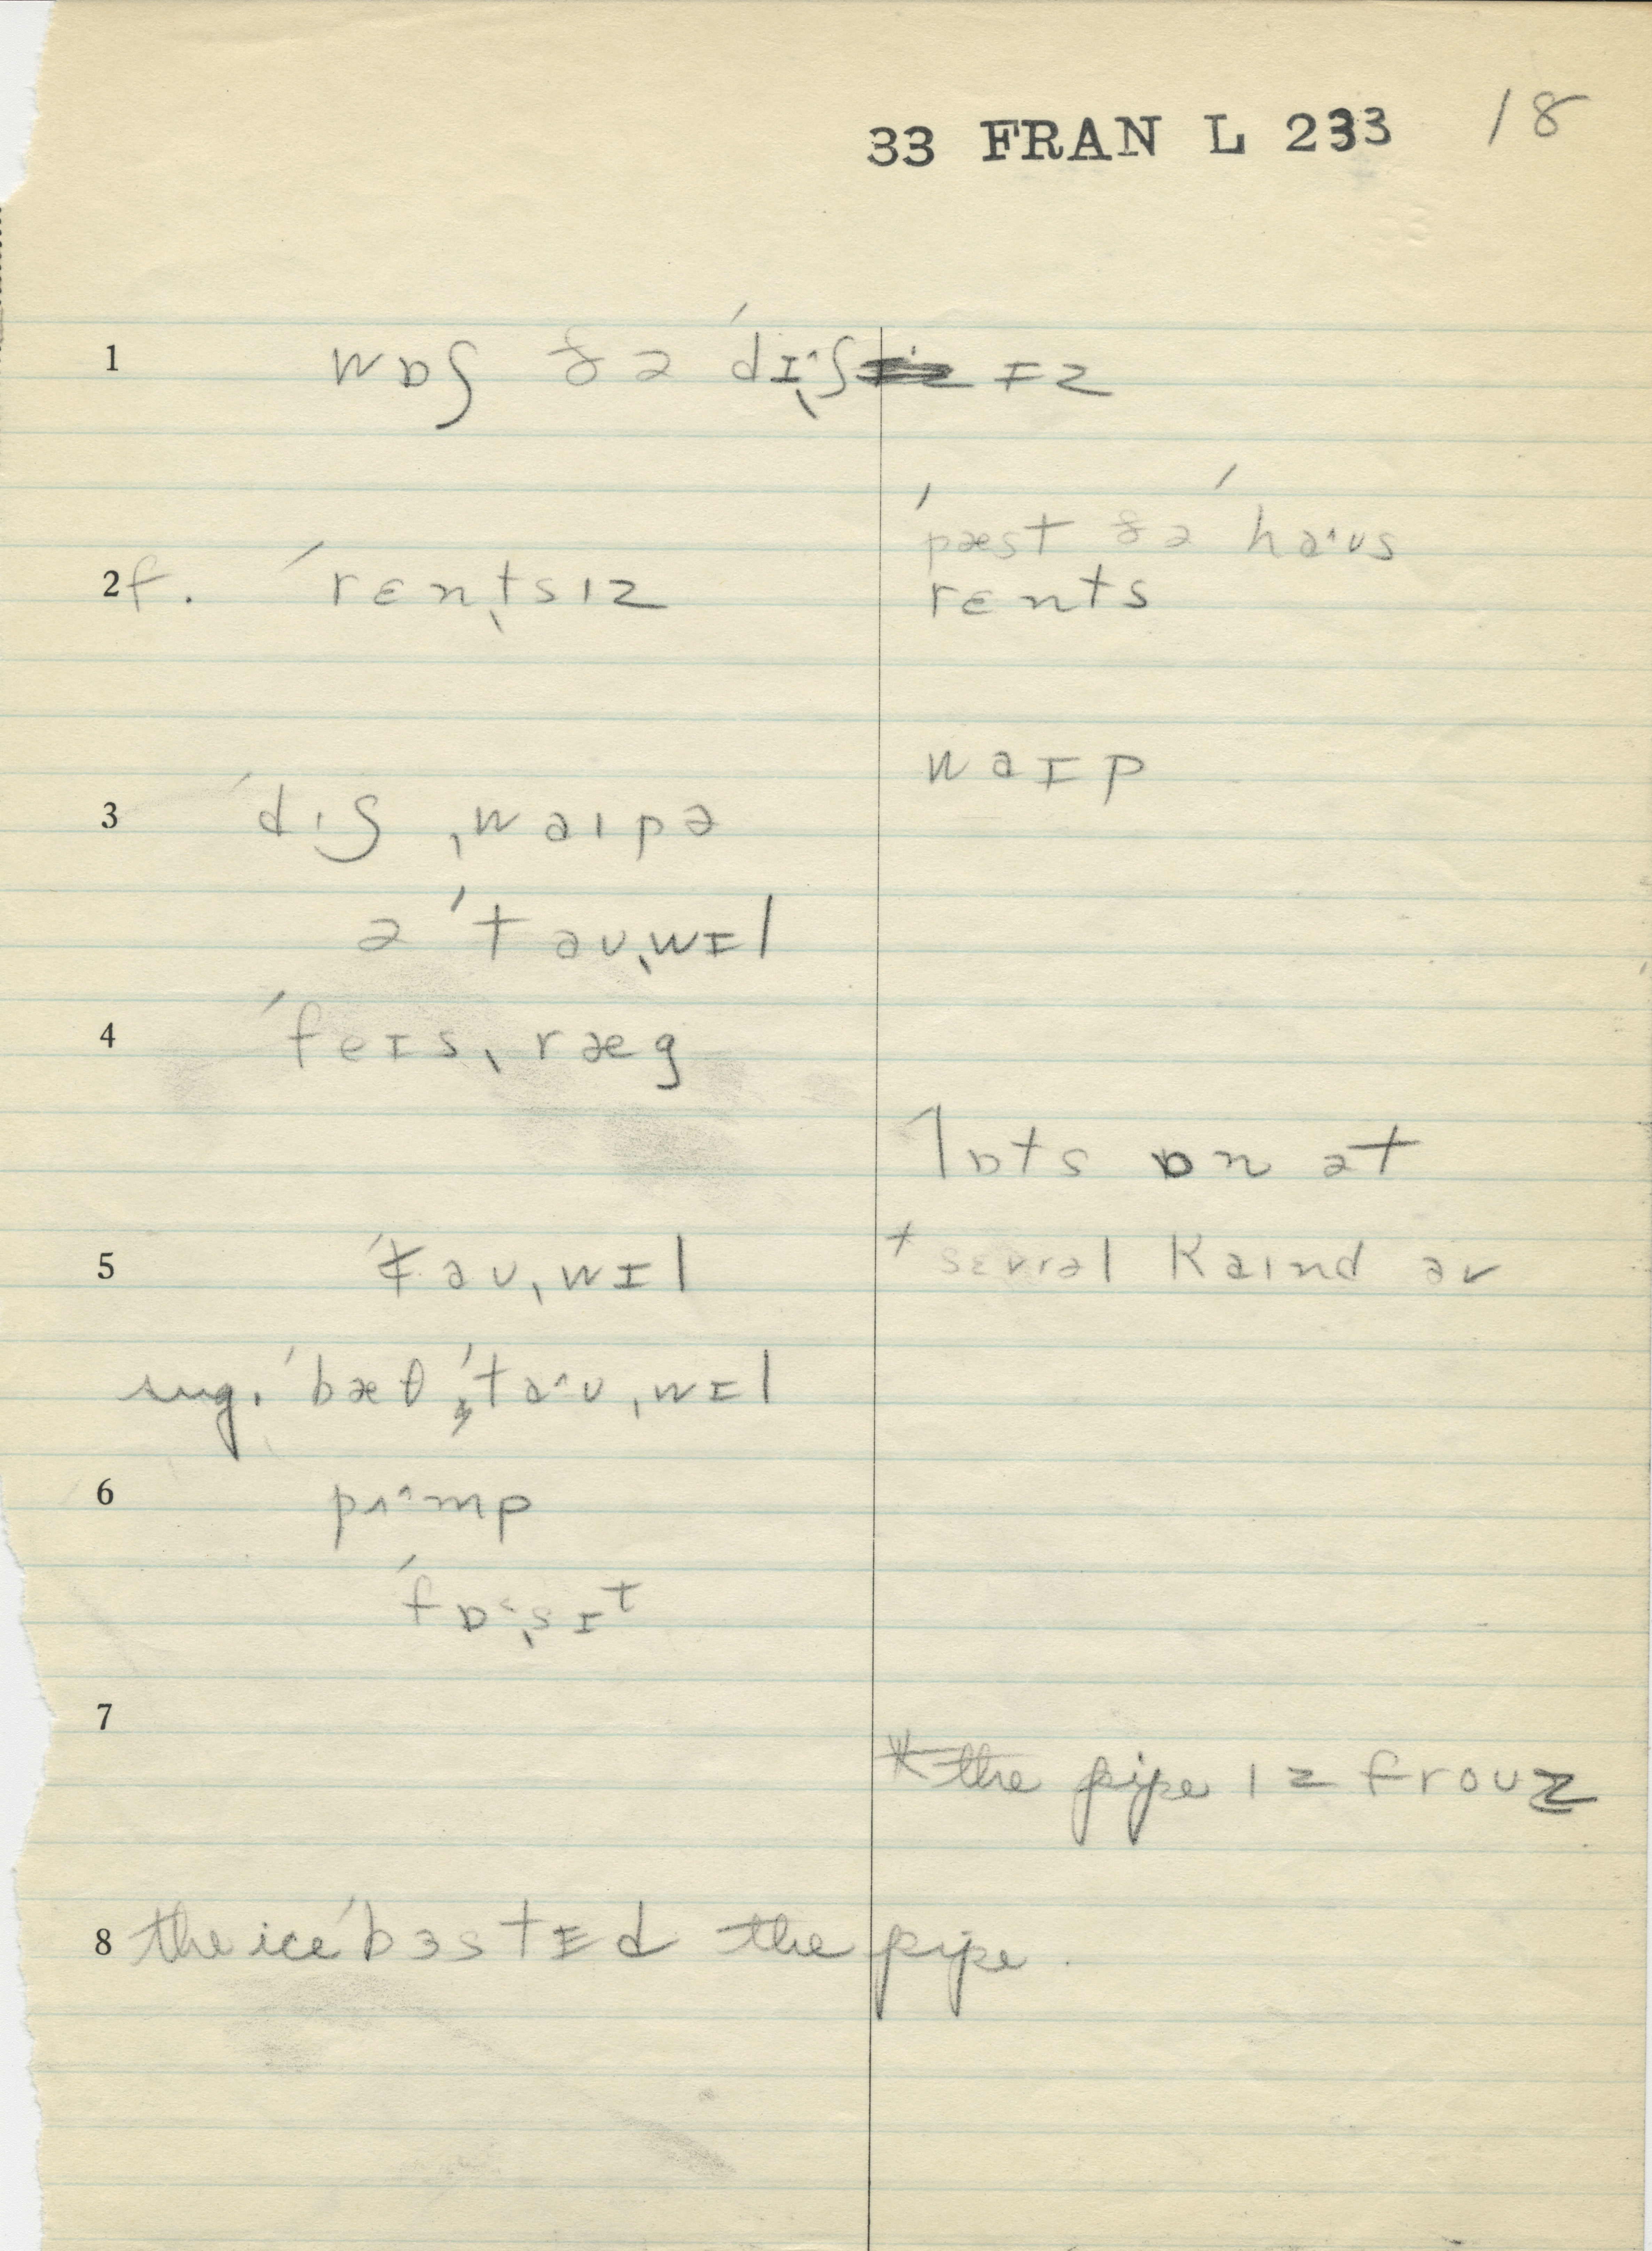 33 FRAN L 233 18
1 wɒʃ ðə ˈdɪˑʃɪz
ˈpæst ðə ˈhaˑʊs
2 f. ˈrɛnˌtsɪz rɛnts
waɪp
3 ˈdɪʃ ˌwaɪpə
ə ˈtaʊˌwɪl
4 ˈfeɪsˌræg
lɒts ɒn ət
5 ˈtaʊˌwɪl + sɛvrəl kaɪnd əv
sug. ˈbæθ ˈtaˑʊˌwɪl
6 pʌˑmp
ˈfɒˑˌsɪt
7
* the pipe ɪz froʊz
8 the ice ˈbɜstɪd the pipe.